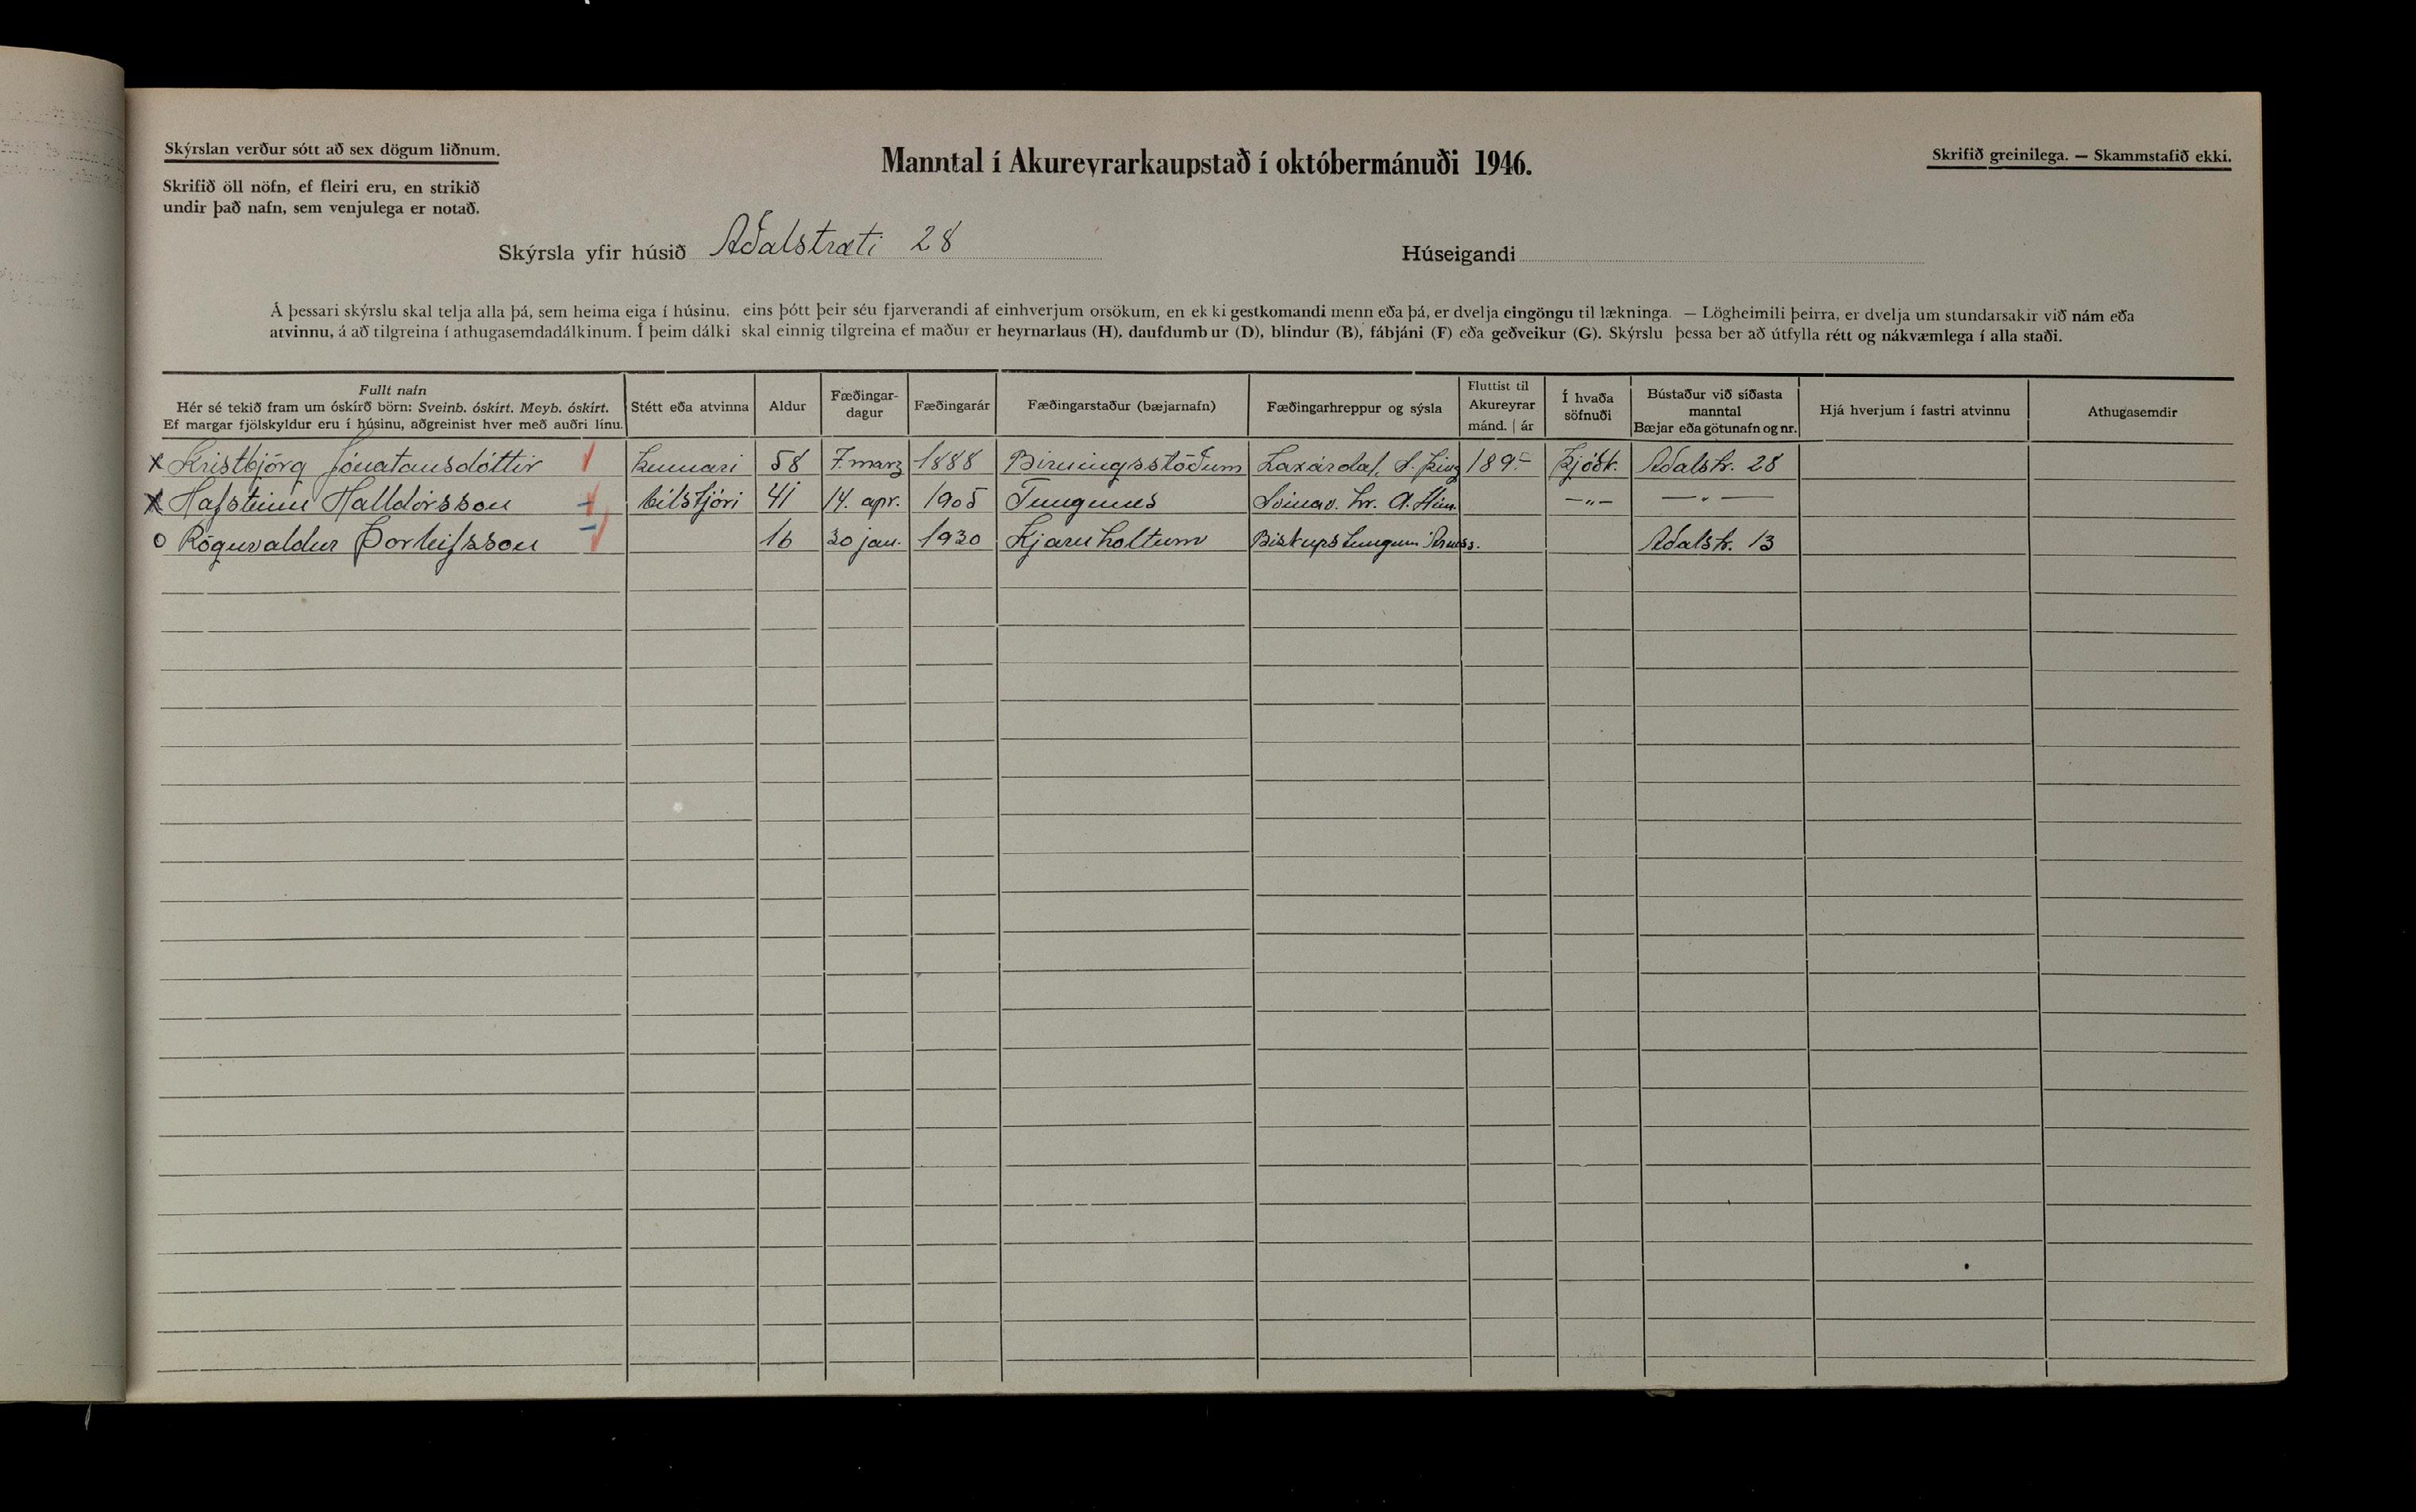 Skýrslan verður sótt að sex dögum liðnum.
Skrifið öll nöfn, ef fleiri eru, en strikið
undir það nafn, sem venjulega er notað.
Manntal í Akureyrarkaupstað í októbermánuði 1946.
Skrifið greinilega. — Skammstafið ekki.
Skýrsla yfir húsið Aðalstræti 28
Húseigandi
Á þessari skýrslu skal telja alla þá, sem heima eiga í húsinu, eins þótt þeir séu fjarverandi af einhverjum orsökum, en ek ki gestkomandi menn eða þá, er dvelja eingöngu til lækninga. — Lögheimili þeirra, er dvelja um stundarsakir við nám eða
atvinnu, á að tilgreina í athugasemdadálkinum. Í þeim dálki skal einnig tilgreina ef maður er heyrnarlaus (H), daufdumb ur (D), blindur (B), fábjáni (F) eða geðveikur (G). Skýrslu þessa ber að útfylla rétt og nákvæmlega í alla staði.
Fullt nafn
Hér sé tekið fram um óskírð börn: Sveinb. óskírt. Meyb. óskírt.
Ef margar fjölskyldur eru í húsinu, aðgreinist hver með auðri línu.
Stétt eða atvinna
Aldur
Fæðingar-
dagur
Fæðingarár
Fæðingarstaður (bæjarnafn)
Fæðingarhreppur og sýsla
Fluttist til
Akureyrar
mánd. | ár
Í hvaða
söfnuði
Bústaður við síðasta
manntal
Bæjar eða götunafn og nr.
Hjá hverjum í fastri atvinnu
Athugasemdir
x Kristbjörg Jónatansdóttir kennari 58 7. marz 1888 Birningsstöðum Laxárdal, S. Þing 189- Þjóðk. Aðalstr. 28
x Hafsteinn Halldórsson bílstjóri 41 14. apr. 1905 Tungunes Svínav. hr. A. Hún. —„— —„—
o Rögnvaldur Þorleifsson 16 30 jan. 1930 Kjarnholtum Biskupstungum Árness. Aðalstr. 13